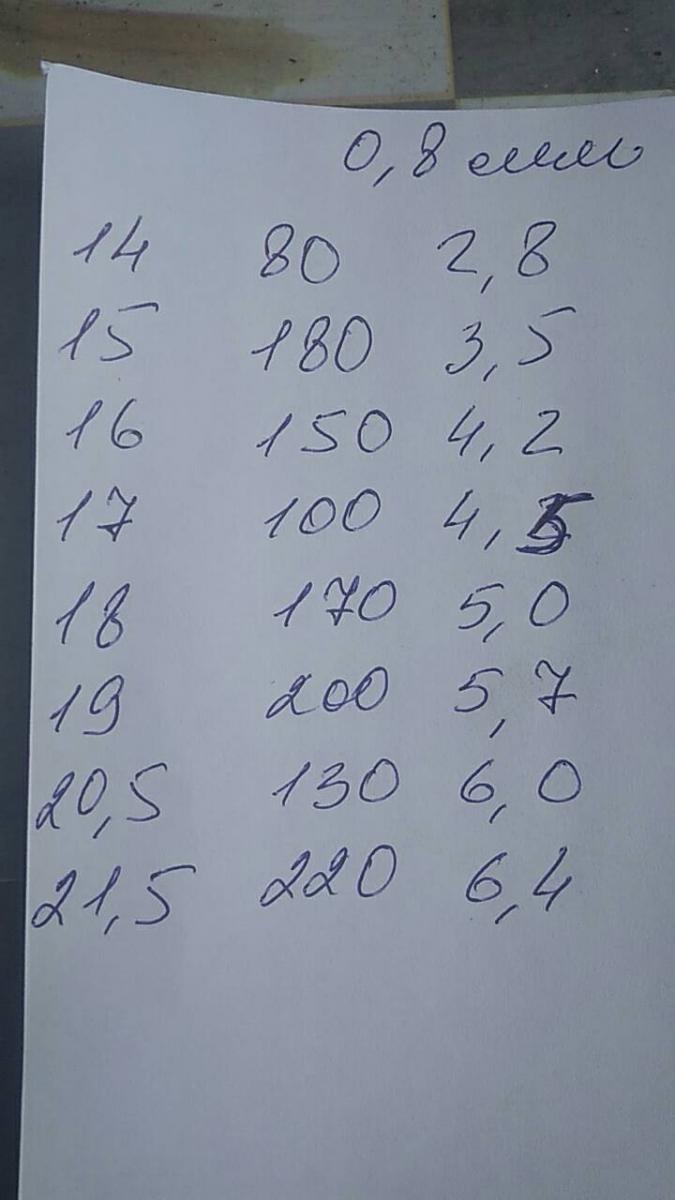 0,8 мм
14 80 2,8
15 180 3,5
16 150 4,2
17 100 4,5
18 170 5,0
19 200 5,7
20,5 130 6,0
21,5 220 6,4